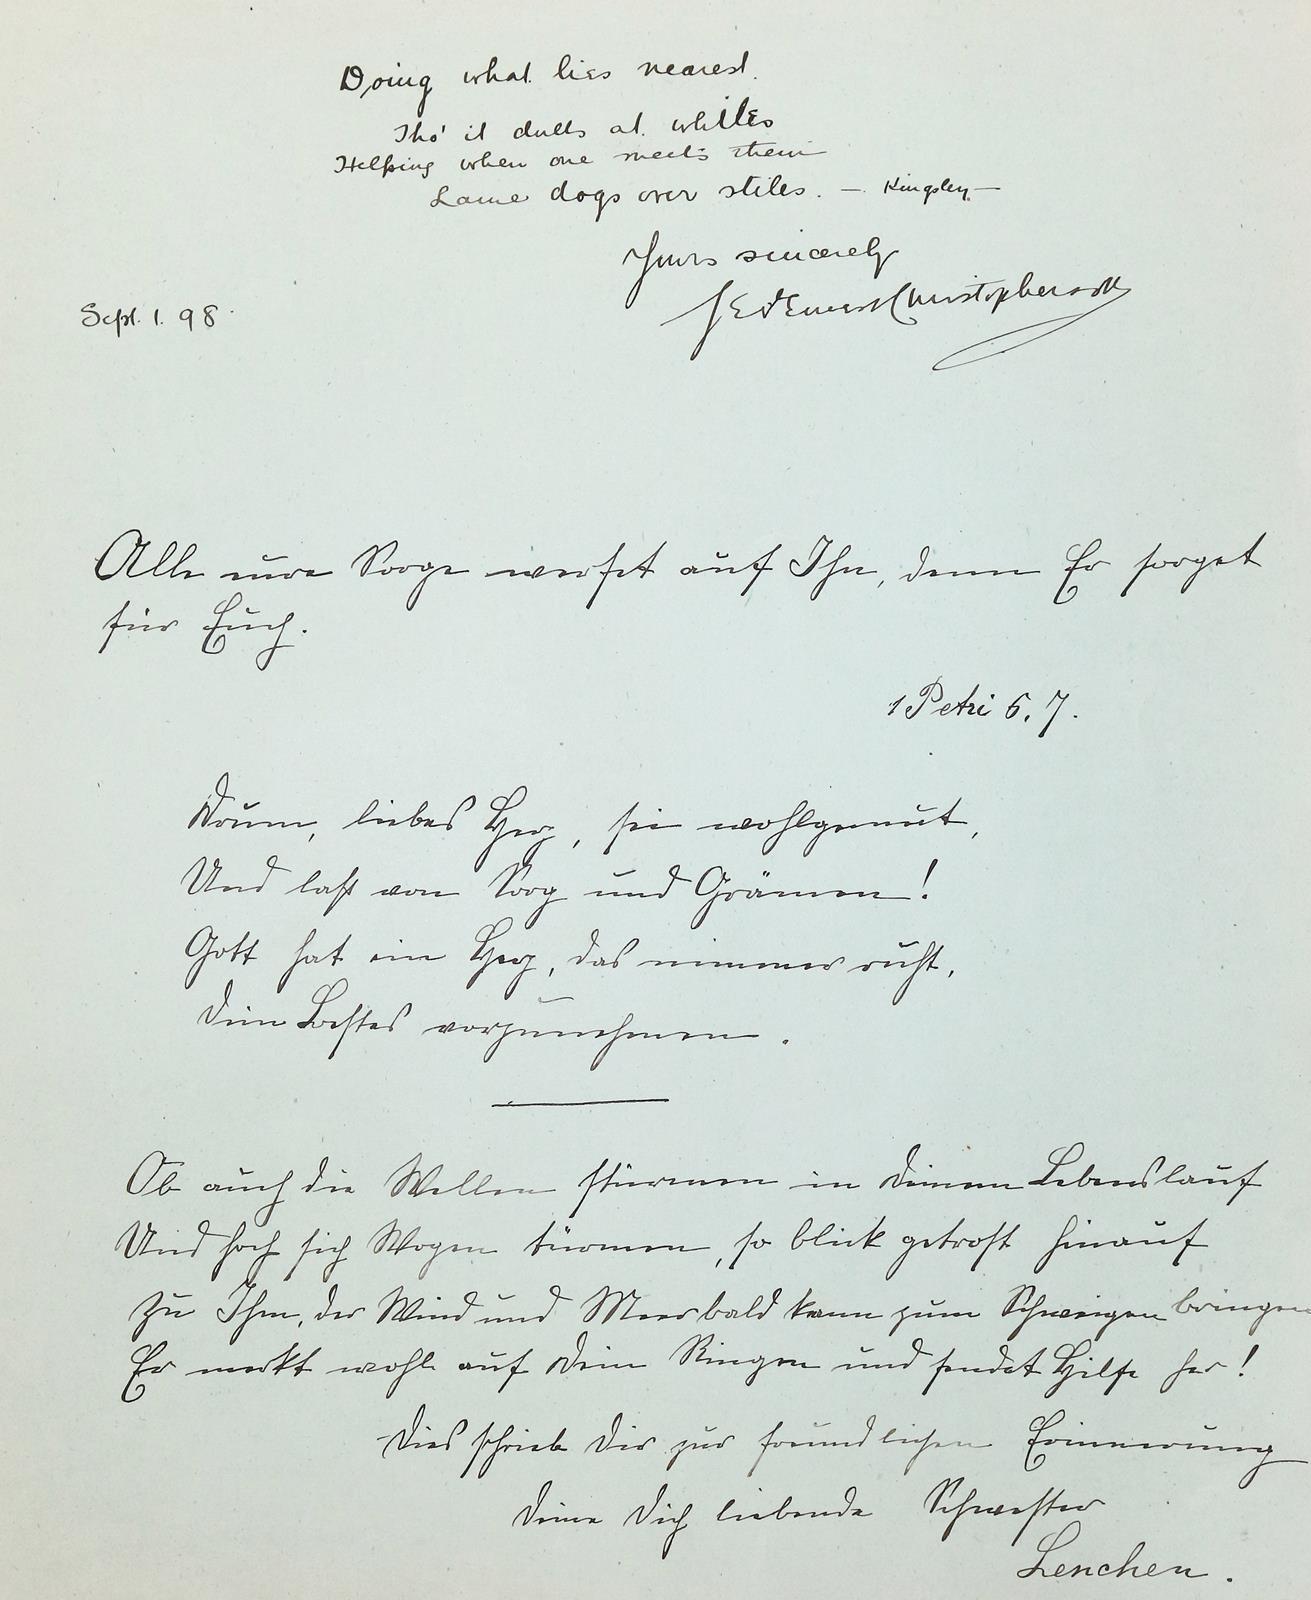 Doing what lies nearest.
Tho' it dulls at whiles
Helping when one meets them
Lame dogs over stiles. — Kingsley —
Yours sincerely
Sept. 1. 98.
Alle eure Sorge werfet auf Ihn, denn Er sorget
für Euch.
1 Petri 5. 7.
Drum, liebes Herz, sei wohlgemut,
Und laß von Sorg und Grämen!
Gott hat ein Herz, das nimmer ruht,
Dein Bestes vorzunehmen.
Ob auch die Wellen stürmen in Deinem Lebenslauf
Und hoch sich Wogen türmen, so blick getrost hinauf
Zu Ihm, der Wind und Meer bald kann zum Schweigen bringen
Er merkt wohl auf Dein Ringen und sendet Hilfe her!
Dies schrieb Dir zur freundlichen Erinnerung
Deine Dich liebende Schwester
Lenchen.